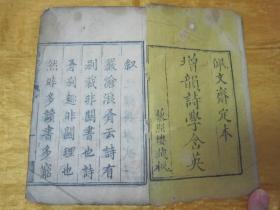 佩文齋定本
增韻詩學含英
敘
嚴滄浪有云詩有
別裁非關書也詩
有別趣非關理也
然非多讀書多窮